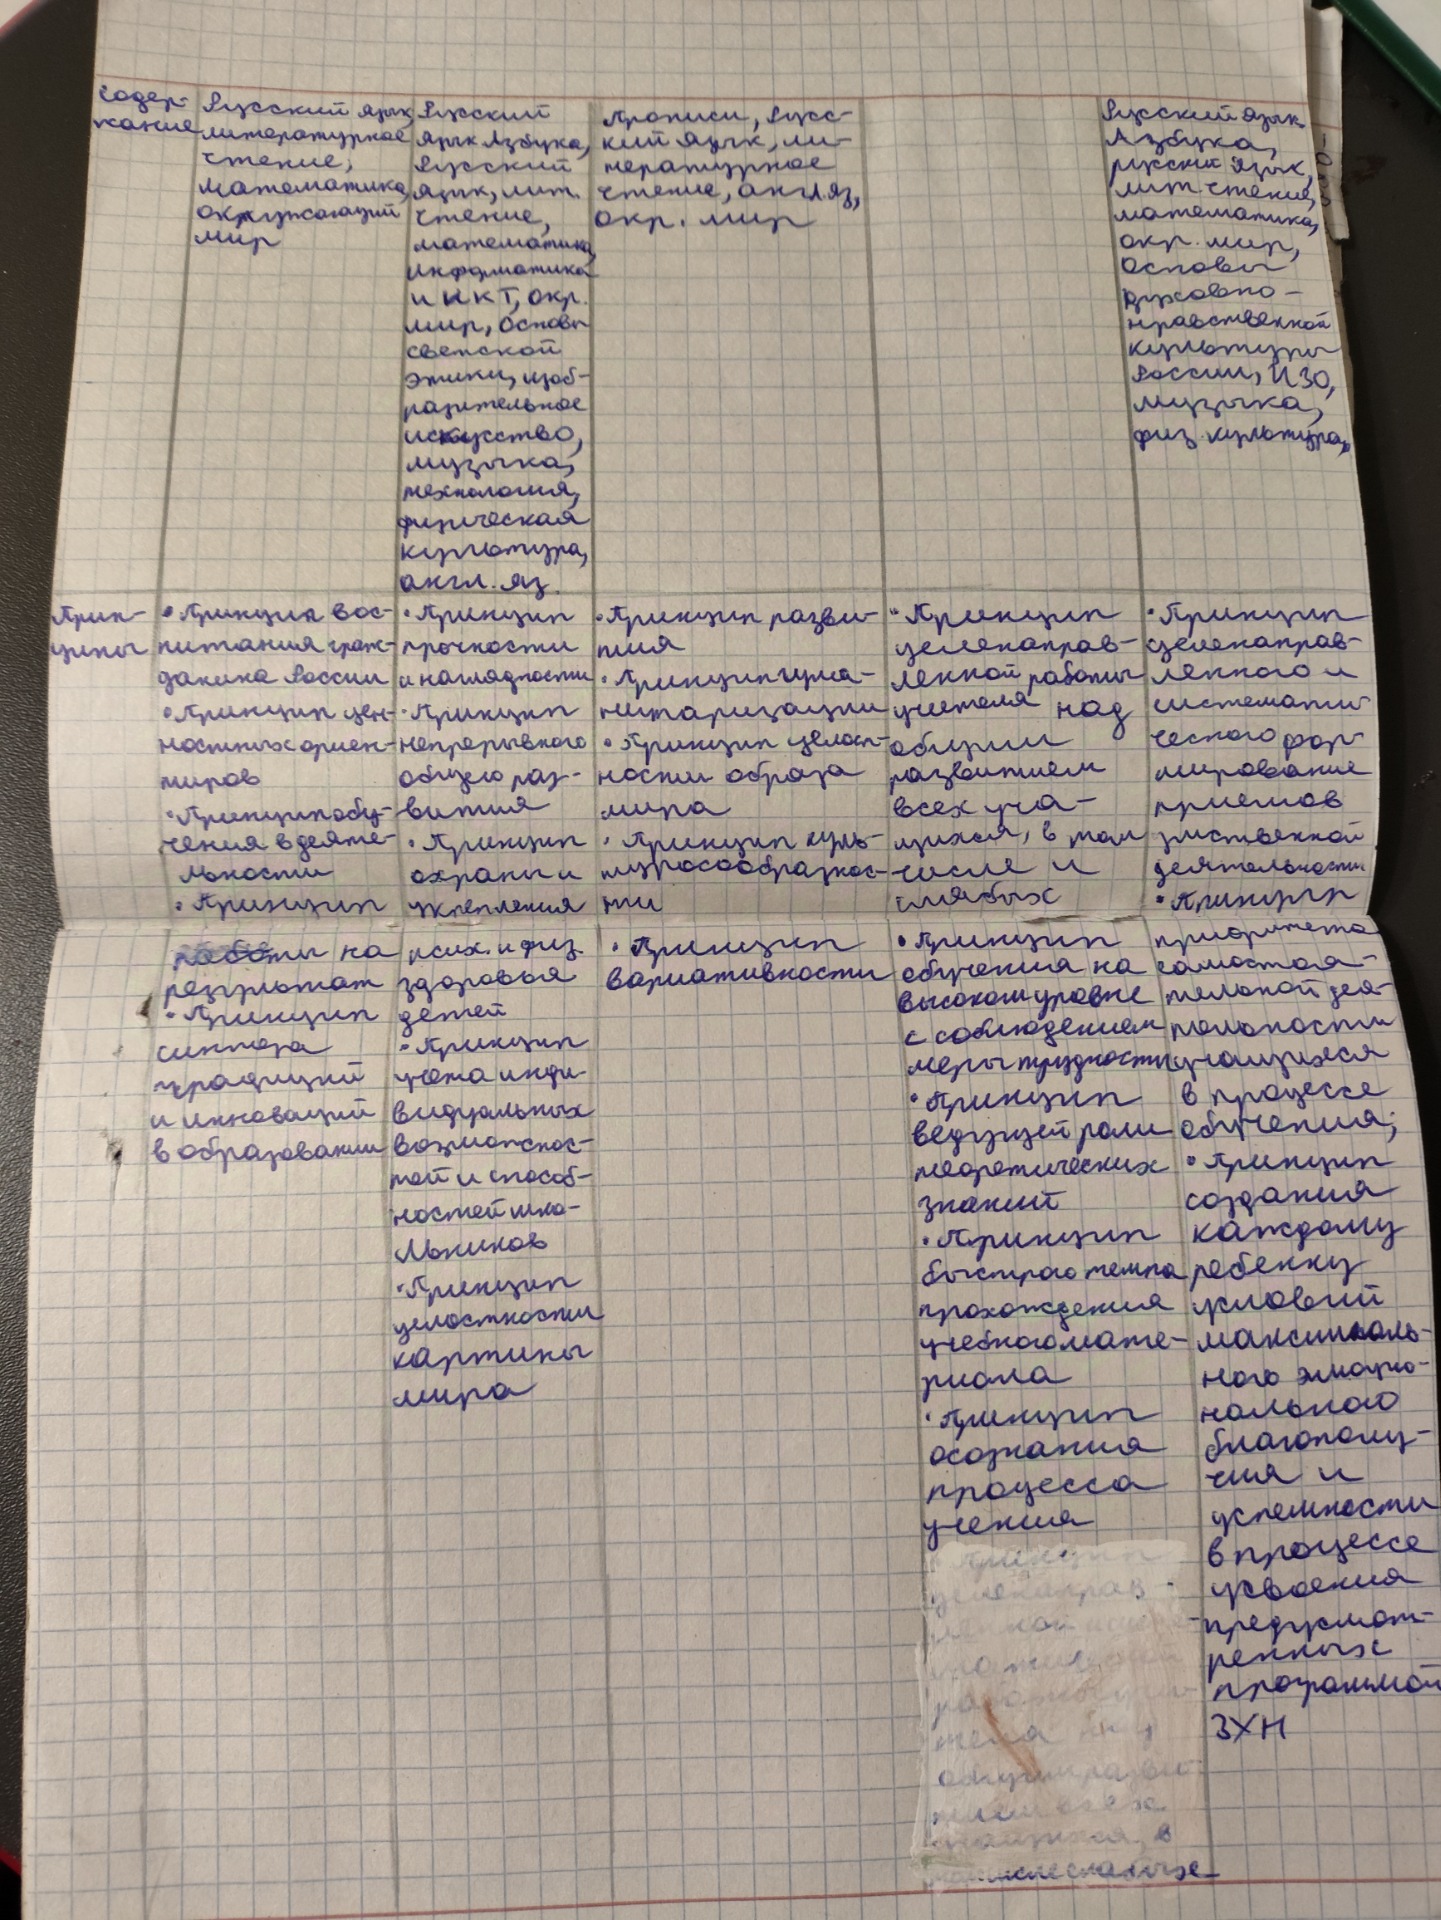 Содер-
жание
Русский язык,
литературное
чтение,
математика,
окружающий
мир
Русский
язык Азбука,
Русский
язык, лит.
чтение,
математика,
информатика
и ИКТ, окр.
мир, основы
светской
этики, изоб-
разительное
искусство,
музыка,
технология,
физическая
культура,
англ. яз.
Прописи, Русс-
кий язык, ли-
тературное
чтение, англ.яз,
окр. мир
Русский язык.
Азбука,
русский язык,
лит. чтение,
математика,
окр. мир,
Основы
духовно-
нравственной
культуры
России, ИЗО,
музыка,
физ. культура,
Прин-
ципы
• Принцип вос-
питания граж-
данина России
• Принцип цен-
ностных ориен-
тиров
• Принцип обу-
чения в деяте-
льности
• Принцип
работы на
результат
• Принцип
синтеза
традиций
и инноваций
в образовании
• Принцип
прочности
и наглядности
• Принцип
непрерывного
общего раз-
вития
• Принцип
охраны и
укрепления
псих. и физ.
здоровья
детей
• Принцип
учета инди-
видуальных
возможнос-
тей и способ-
ностей шко-
льников
• Принцип
целостности
картины
мира
• Принцип разви-
тия
• Принцип гума-
нитаризации
• Принцип целост-
ности образа
мира
• Принцип куль-
туросообразнос-
ти
• Принцип
вариативности
• Принцип
целенаправ-
ленной работы
учителя над
общим
развитием
всех уча-
щихся, в том
числе и
слабых
• Принцип
обучения на
высоком уровне
с соблюдением
меры трудности
• Принцип
ведущей роли
теоретических
знаний
• Принцип
быстрого темпа
прохождения
учебного мате-
риала
• Принцип
осознания
процесса
учения
Принцип
целенаправ-
общим разви-
тием всех
учащихся, в
том числе слабых
• Принцип
целенаправ-
ленного и
системати
ческого фор-
мирование
приемов
умственной
деятельности
• Принцип
приоритета
самостоя-
тельной дея-
тельности
учащихся
в процессе
обучения;
• Принцип
создания
каждому
ребенку
условий
максималь-
ного эмоцио-
нального
благополу-
чия и
успешности
в процессе
усвоения
предусмот-
ренных
программой
ЗУН